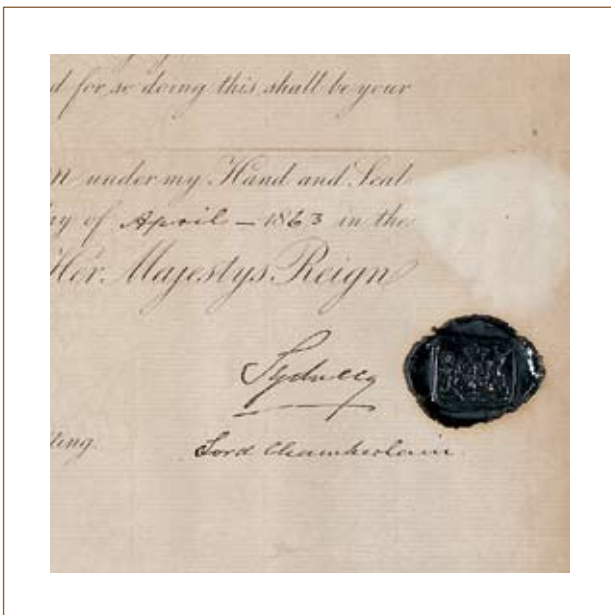 d for so doing this shall be your
n under my Hand and Seal
ay of April – 1863 in the
Her Majestys Reign
Sydney
ting.
Lord Chamberlain